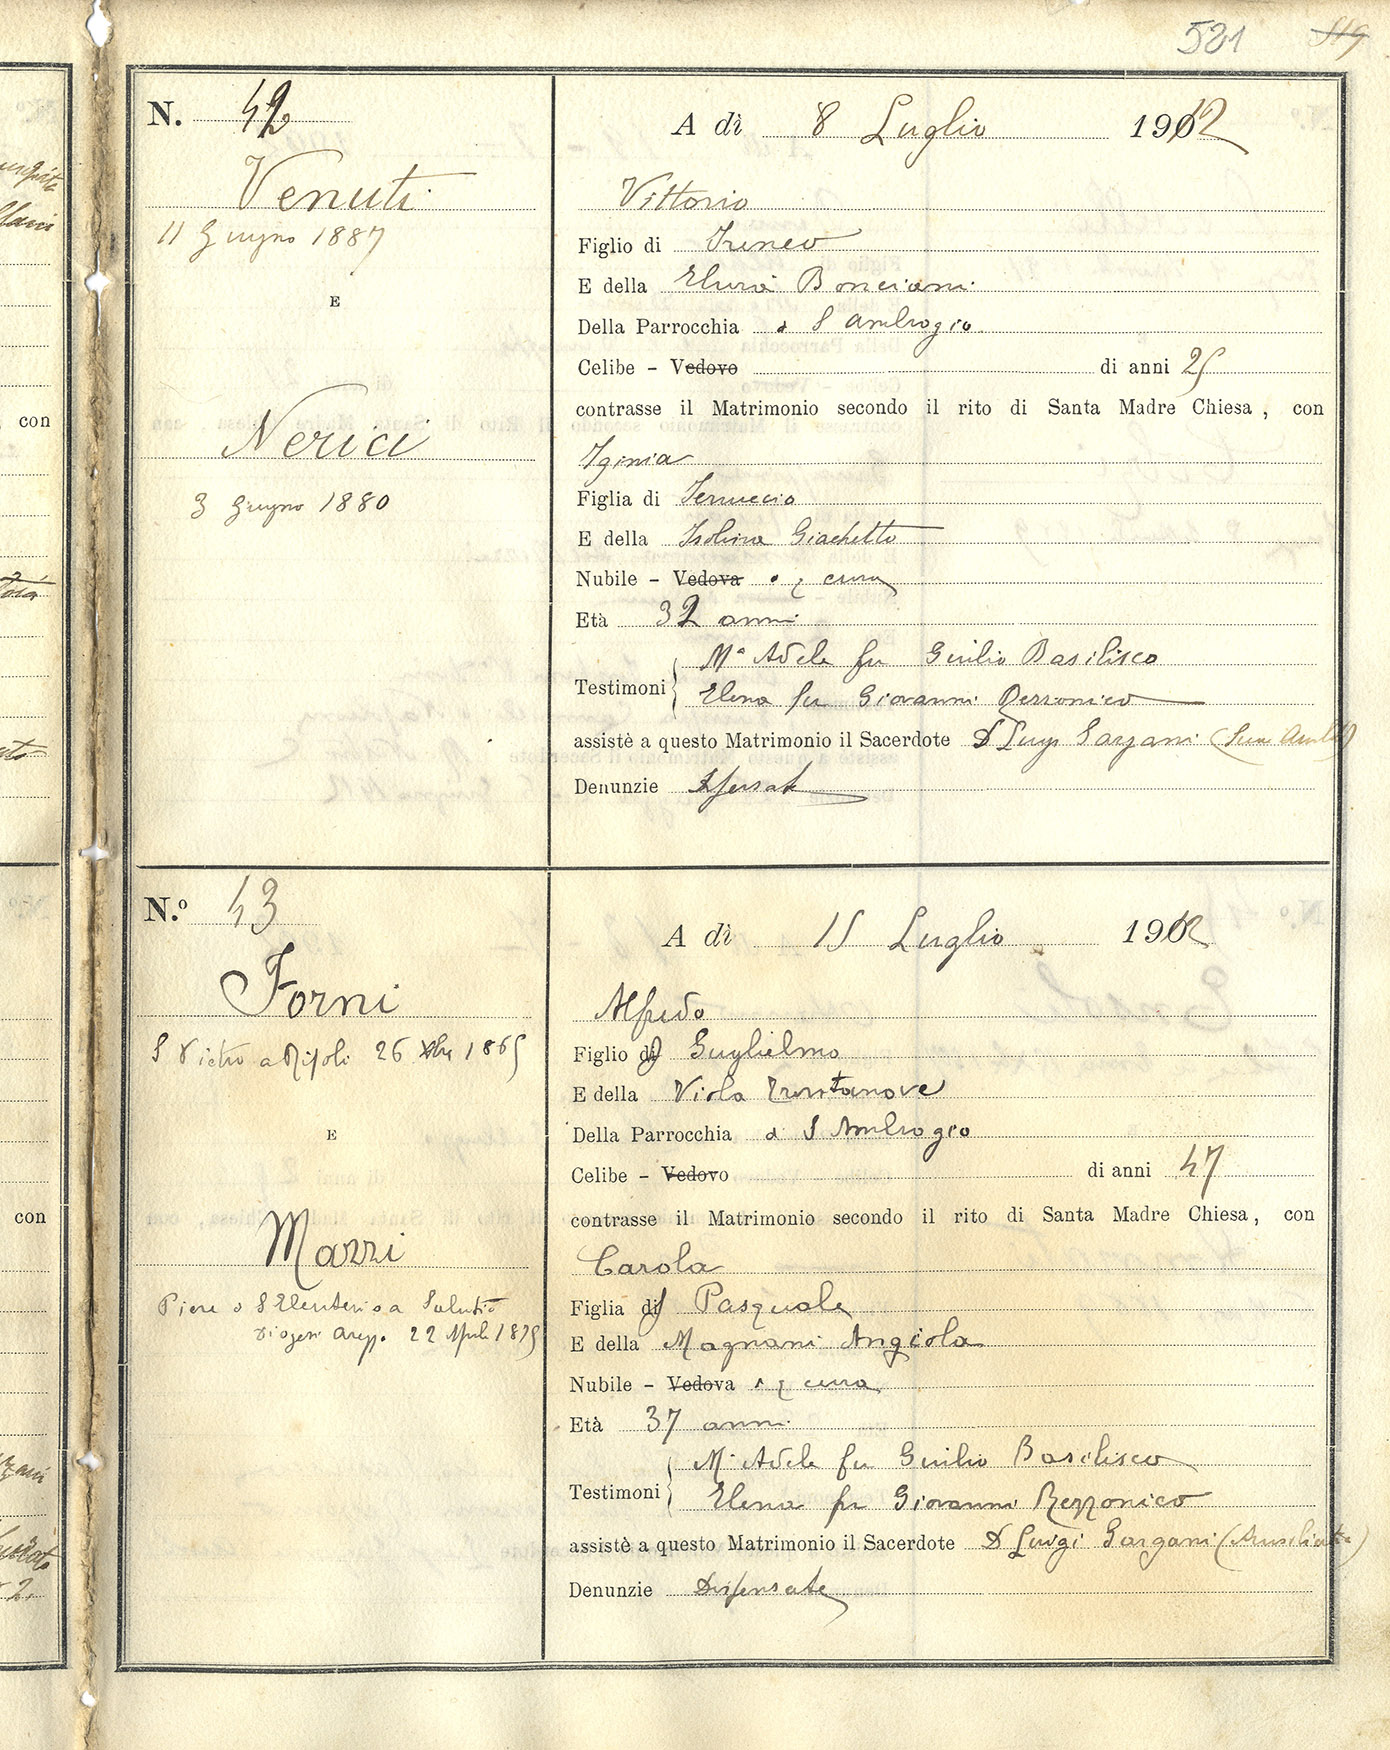 521 519
N. 42
A dì 8 Luglio 1912
Venuti
11 Giugno 1887
E
Nerici
3 Giugno 1880
Vittorio
Figlio di Ireneo
E della Elvira Bonciani
Della Parrocchia di S Ambrogio
Celibe - Vedovo di anni 25
contrasse il Matrimonio secondo il rito di Santa Madre Chiesa, con
Iginia
Figlia di Ferruccio
E della Isolina Giachetto
Nubile - Vedova cura
Età 32 anni
Testimoni
Mª Adele fu Giulio Basilisco
Elena fu Giovanni Rezzonico
assistè a questo Matrimonio il Sacerdote D Luigi Gargani
Denunzie Dispensate
N.º 43
A dì 15 Luglio 1912
Forni
S Pietro a Ripoli 26 Xbre 1865
E
Mazzi
Pieve S Eleuterio a Salutio
Diogesi Arezzo 22 Aprile 1875
Alfredo
Figlio di Guglielmo
E della Viola Trentanove
Della Parrocchia di S Ambrogio
Celibe - Vedovo di anni 47
contrasse il Matrimonio secondo il rito di Santa Madre Chiesa, con
Carola
Figlia di Pasquale
E della Magnani Angiola
Nubile - Vedova cura
Età 37 anni
Testimoni
Mª Adele fu Giulio Basilisco
Elena fu Giovanni Rezzonico
assistè a questo Matrimonio il Sacerdote D Luigi Gargani (Ausiliante)
Denunzie Dispensate
con
con